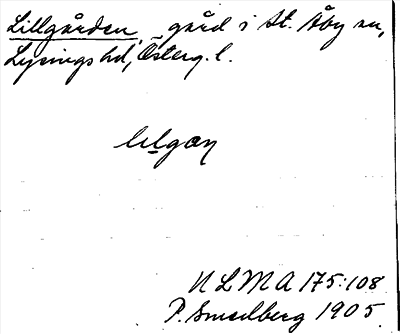 Lillgården, gård i St. Åby sn,
Lysings hd, Österg. l.
lilgan
N L M A 175:108
P. Smedberg 1905